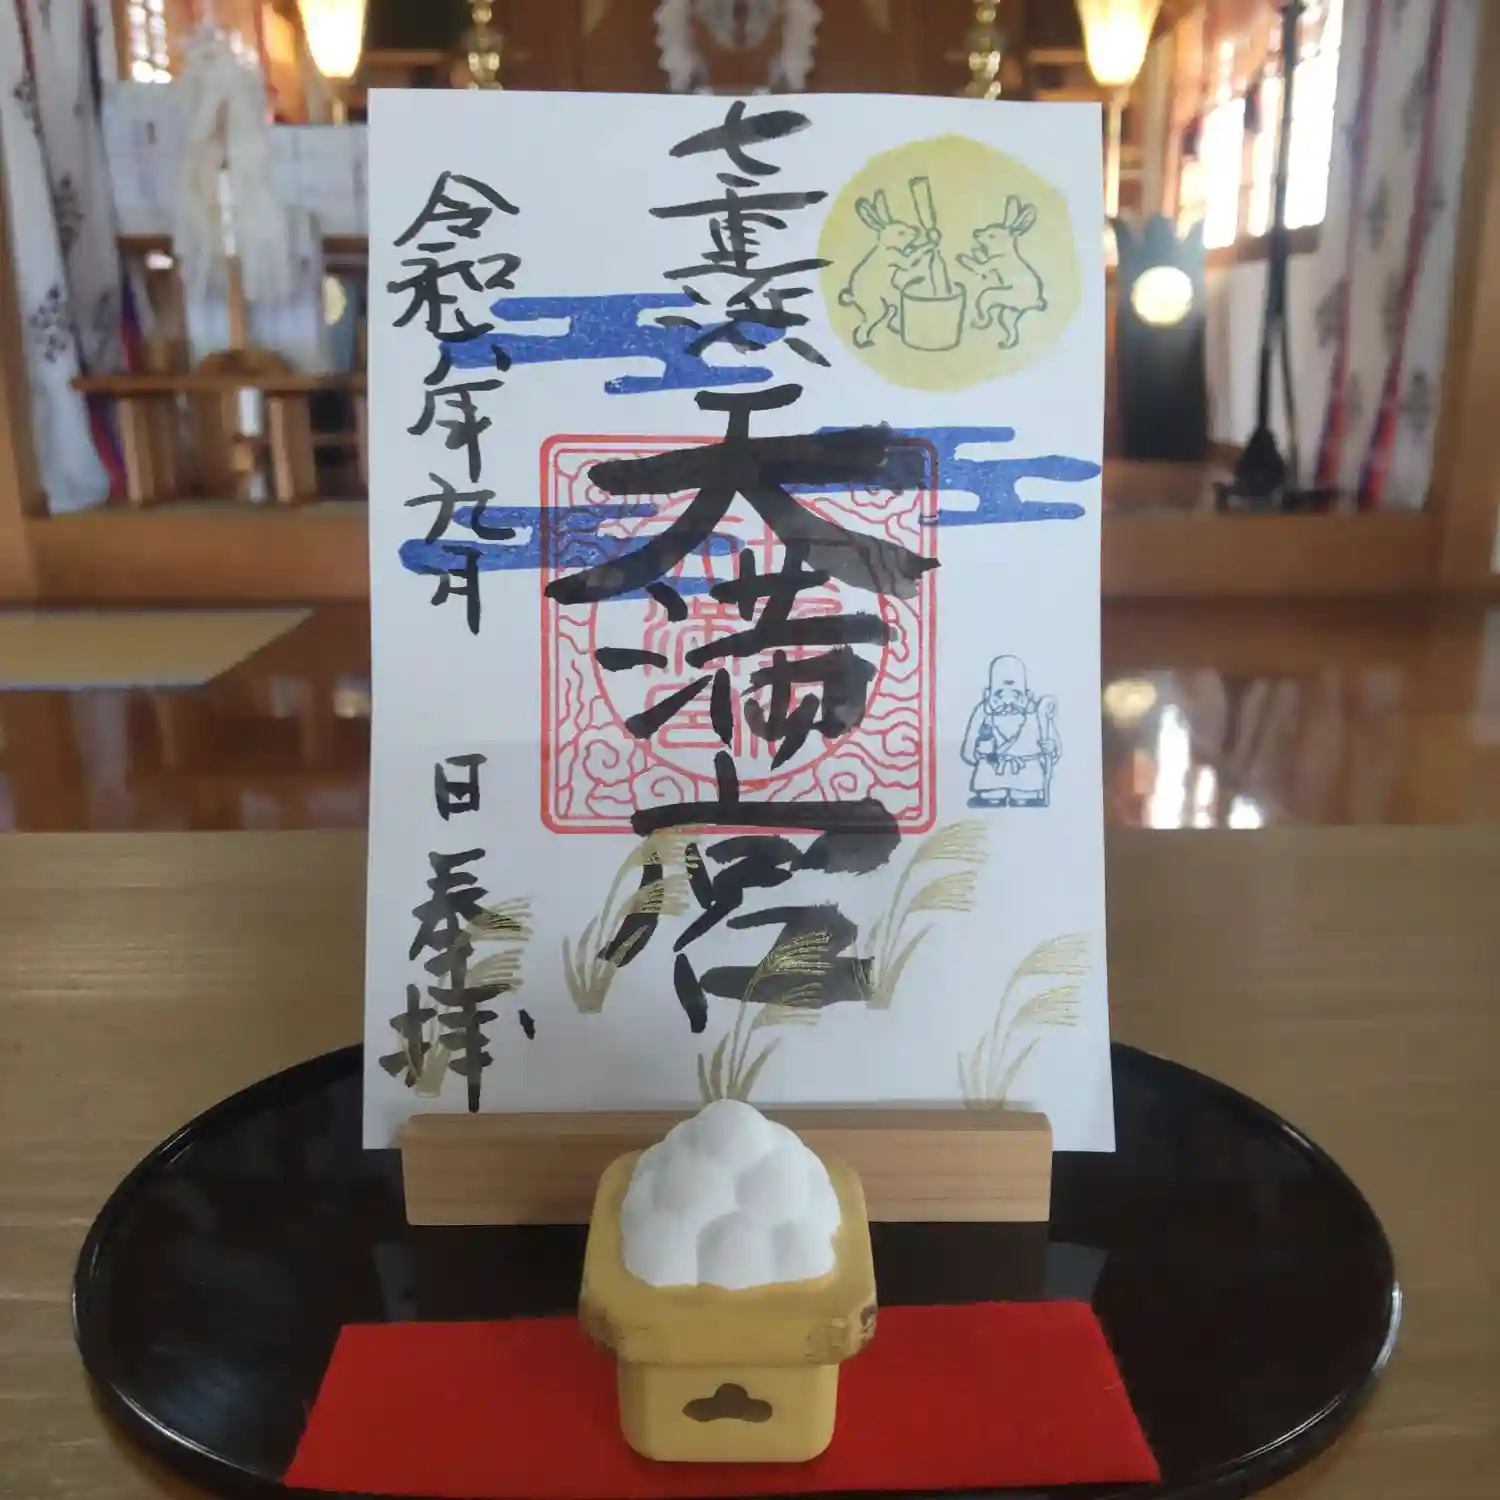 七重浜天満宮
令和六年九月 日 奉拝